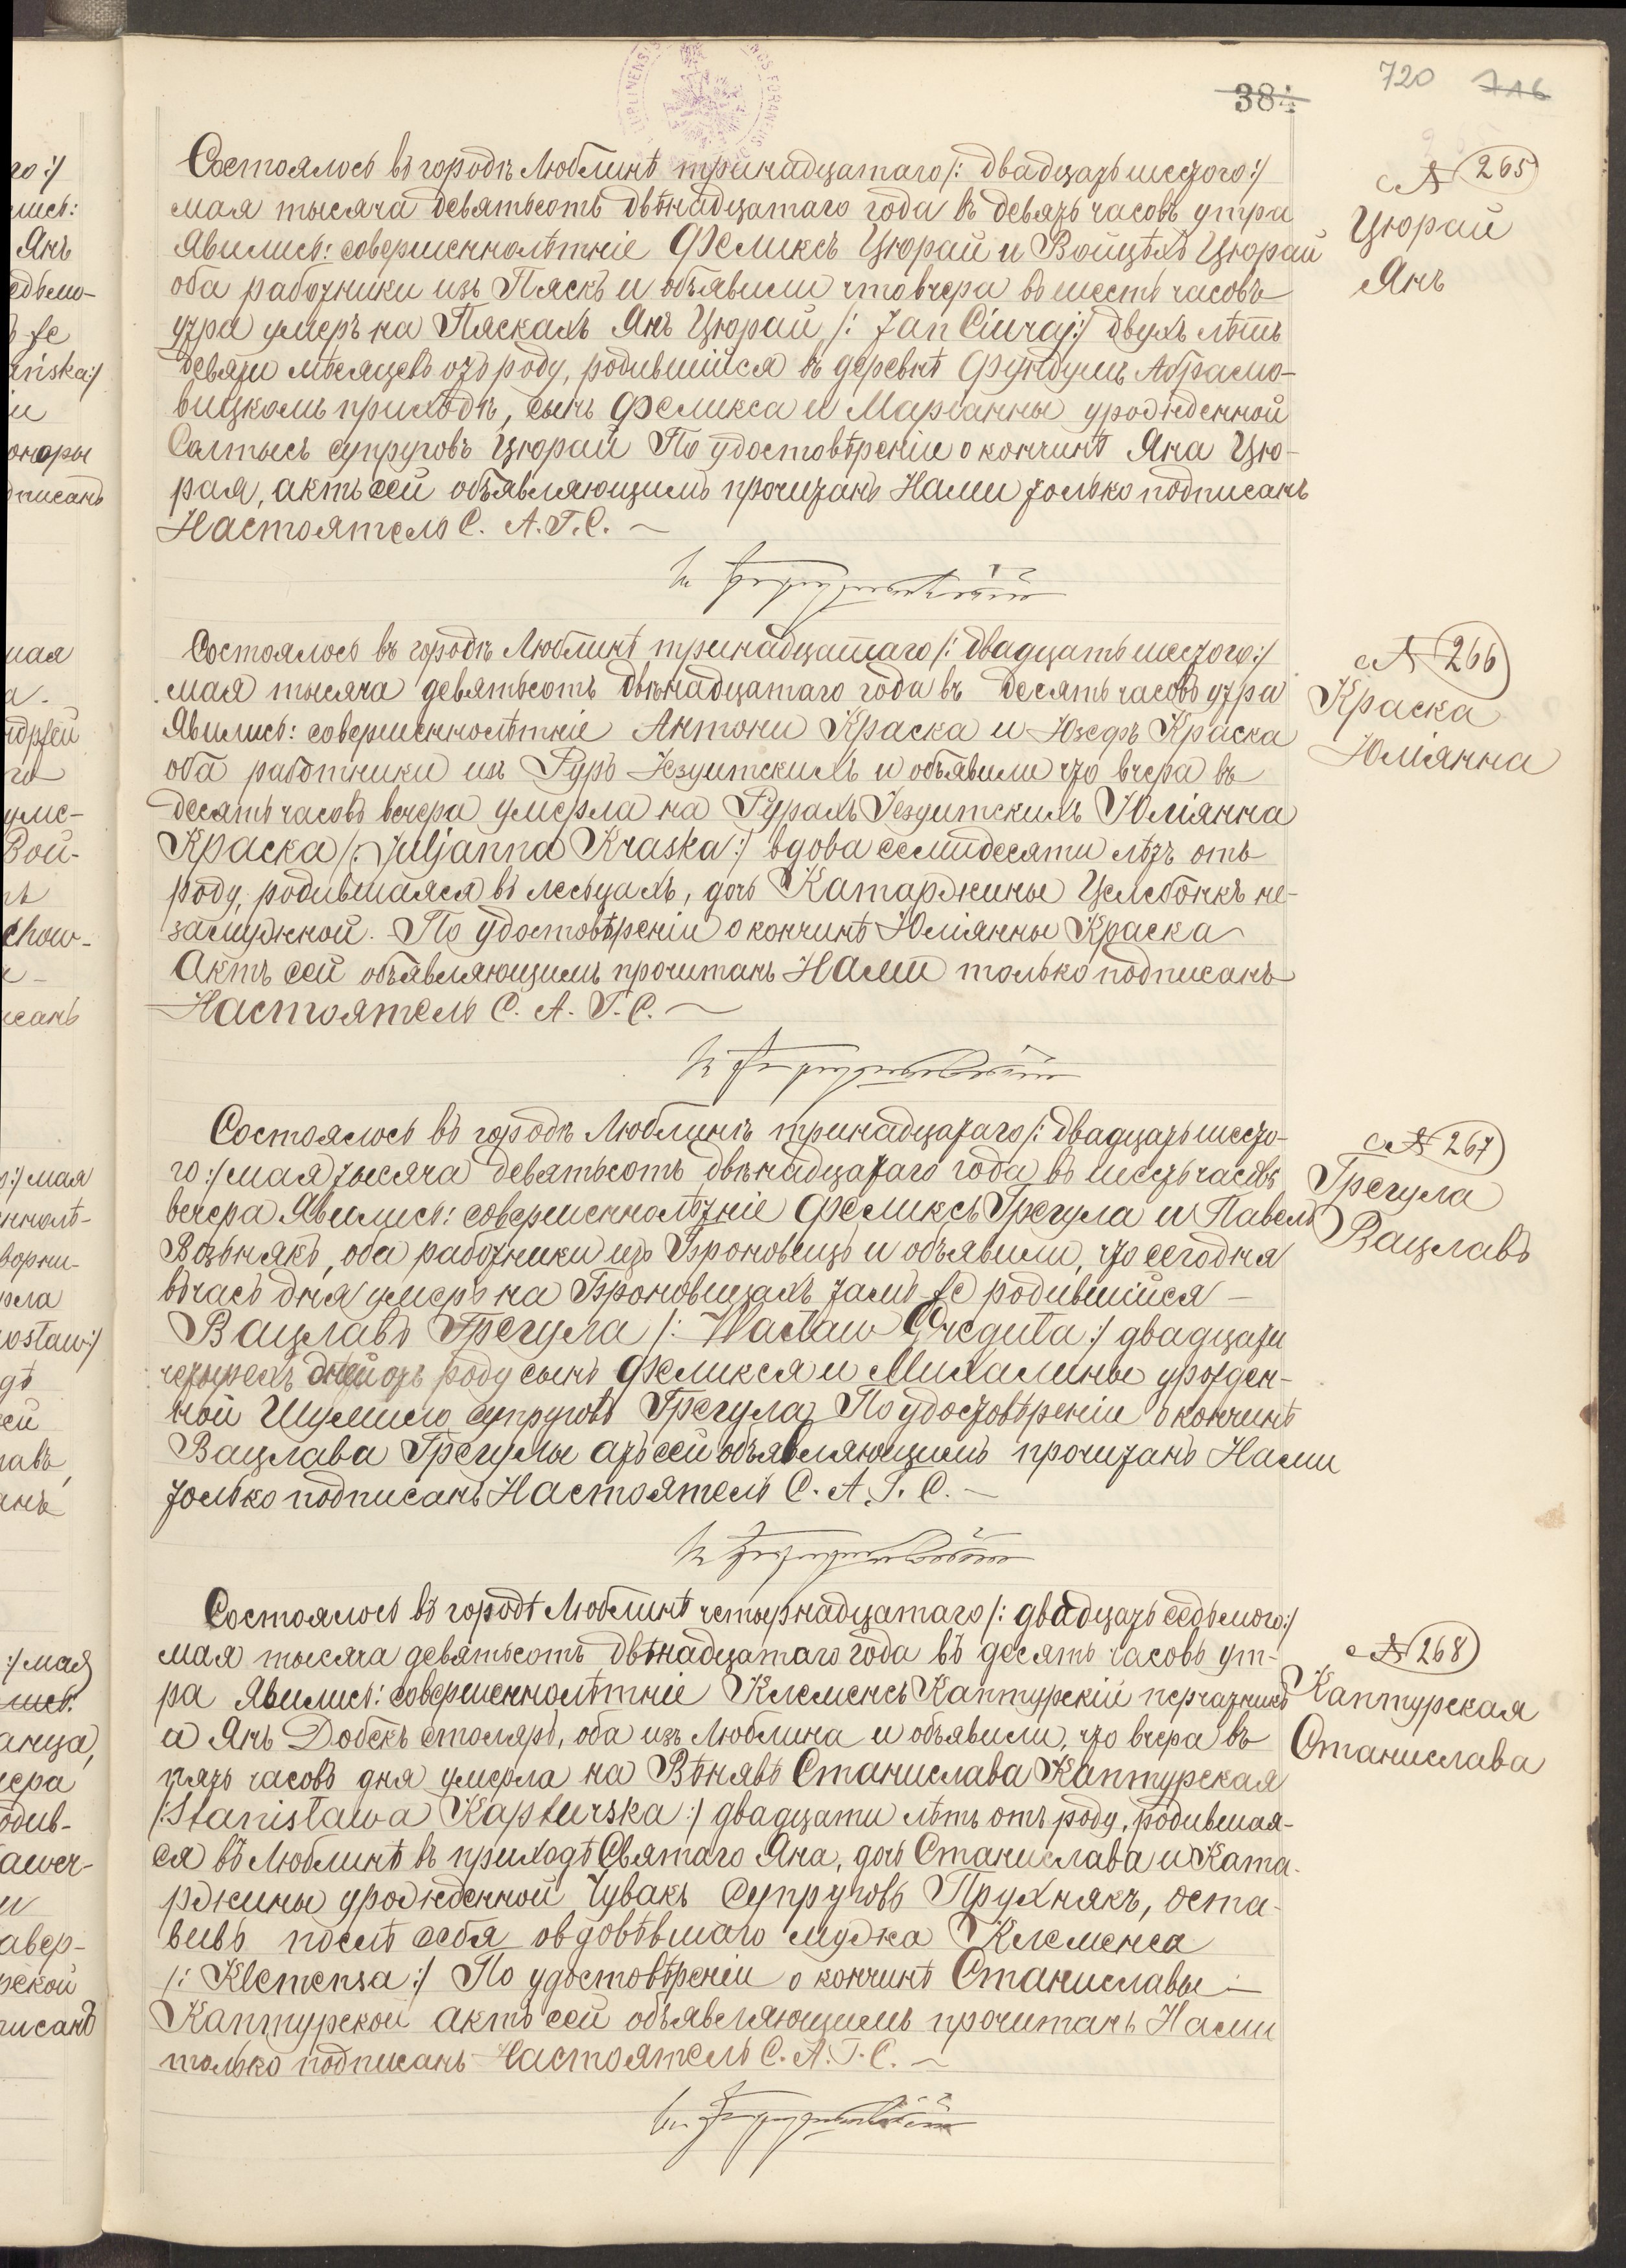 384
720 716
Состоялось въ городѣ Люблинѣ тринадцатаго /: двадцать шестого :/
мая тысяча девятьсотъ двѣнадцатаго года въ девять часовъ утра
Явились: совершеннолѣтніе Феликсъ Цюрай и Войцѣхъ Цюрай
оба работники изъ Пяскъ и объявили что вчера въ шесть часовъ
утра умеръ на Пяскахъ Янъ Цюрай /: Jan Ciuraj :/ двухъ лѣтъ
девяти мѣсяцевъ отъ роду, родившійся въ деревнѣ Фундушъ Абрамо-
вицкомъ приходѣ, сынъ Феликса и Маріанны урожденной
Солтысъ супруговъ Цюрай По удостовѣреніи о кончинѣ Яна Цю-
рая, актъ сей объявляющимъ прочитанъ Нами только подписанъ
Настоятель С. А. Г. С.
№ 265
Цюрай
Янъ
Состоялось въ городѣ Люблинѣ тринадцатаго /: двадцать шестого :/
мая тысяча девятьсотъ двѣнадцатаго года въ десять часовъ утра
Явились: совершеннолѣтніе Антони Краска и Юзефъ Краска
оба работники изъ Руръ Іезуитскихъ и объявили что вчера въ
десять часовъ вечера умерла на Рурахъ Іезуитскихъ Юліянна
Краска /: Juljanna Kraska :/ вдова семидесяти лѣтъ отъ
роду, родившаяся въ лесьцахъ, дочь Катаржины Целебонкъ не-
замужной. По удостовѣреніи о кончинѣ Юліянны Краска
Актъ сей объявляющимъ прочитанъ Нами только подписанъ
Настоятель С. А. Г. С.
№ 266
Краска
Юліянна
Состоялось въ городѣ Люблинѣ тринадцатаго /: двадцать шесто-
го :/ мая тысяча девятьсотъ двѣнадцатаго года въ шесть часовъ
вечера Явились: совершеннолѣтніе Феликсъ Грегула и Павелъ
Возьнякъ, оба работники изъ Броновицъ и объявили, что сегодня
въ часъ дня умеръ на Броновицахъ тамъ же родившійся
Вацлавъ Грегула /: Wacław Greguła :/ двадцати
четырехъ дней отъ роду сынъ Феликса и Михалины урожден-
ной Шумило супруговъ Грегула По удостовѣреніи о кончинѣ
Вацлава Грегулы атъ сей объявляющимъ прочитанъ Нами
только подписанъ Настоятель С. А. Г. С.
№ 267
Грегула
Вацлавъ
Состоялось въ городѣ Люблинѣ четырнадцатаго /: двадцать седьмого :/
мая тысяча девятьсотъ двѣнадцатаго года въ десять часовъ ут-
ра Явились: совершеннолѣтніе Клеменсъ Каптурскій перчатникъ
и Янъ Добекъ столяръ, оба изъ Люблина и объявили, что вчера въ
пять часовъ дня умерла на Вѣнявѣ Станислава Каптурская
/: Stanisława Kapturska :/ двадцати лѣтъ отъ роду, родившая-
ся въ Люблинѣ въ приходѣ Святаго Яна, дочь Станислава и Ката-
ржины урожденной Чувакъ супруговъ Прухнякъ, оста-
вивъ послѣ себя овдовѣвшаго мужа Клеменса
/: Klemensa :/ По удостовѣреніи о кончинѣ Станиславы
Каптурской актъ сей объявляющимъ прочитанъ Нами
только подписанъ Настоятель С. А. Г. С.
№ 268
Каптурская
Станислава